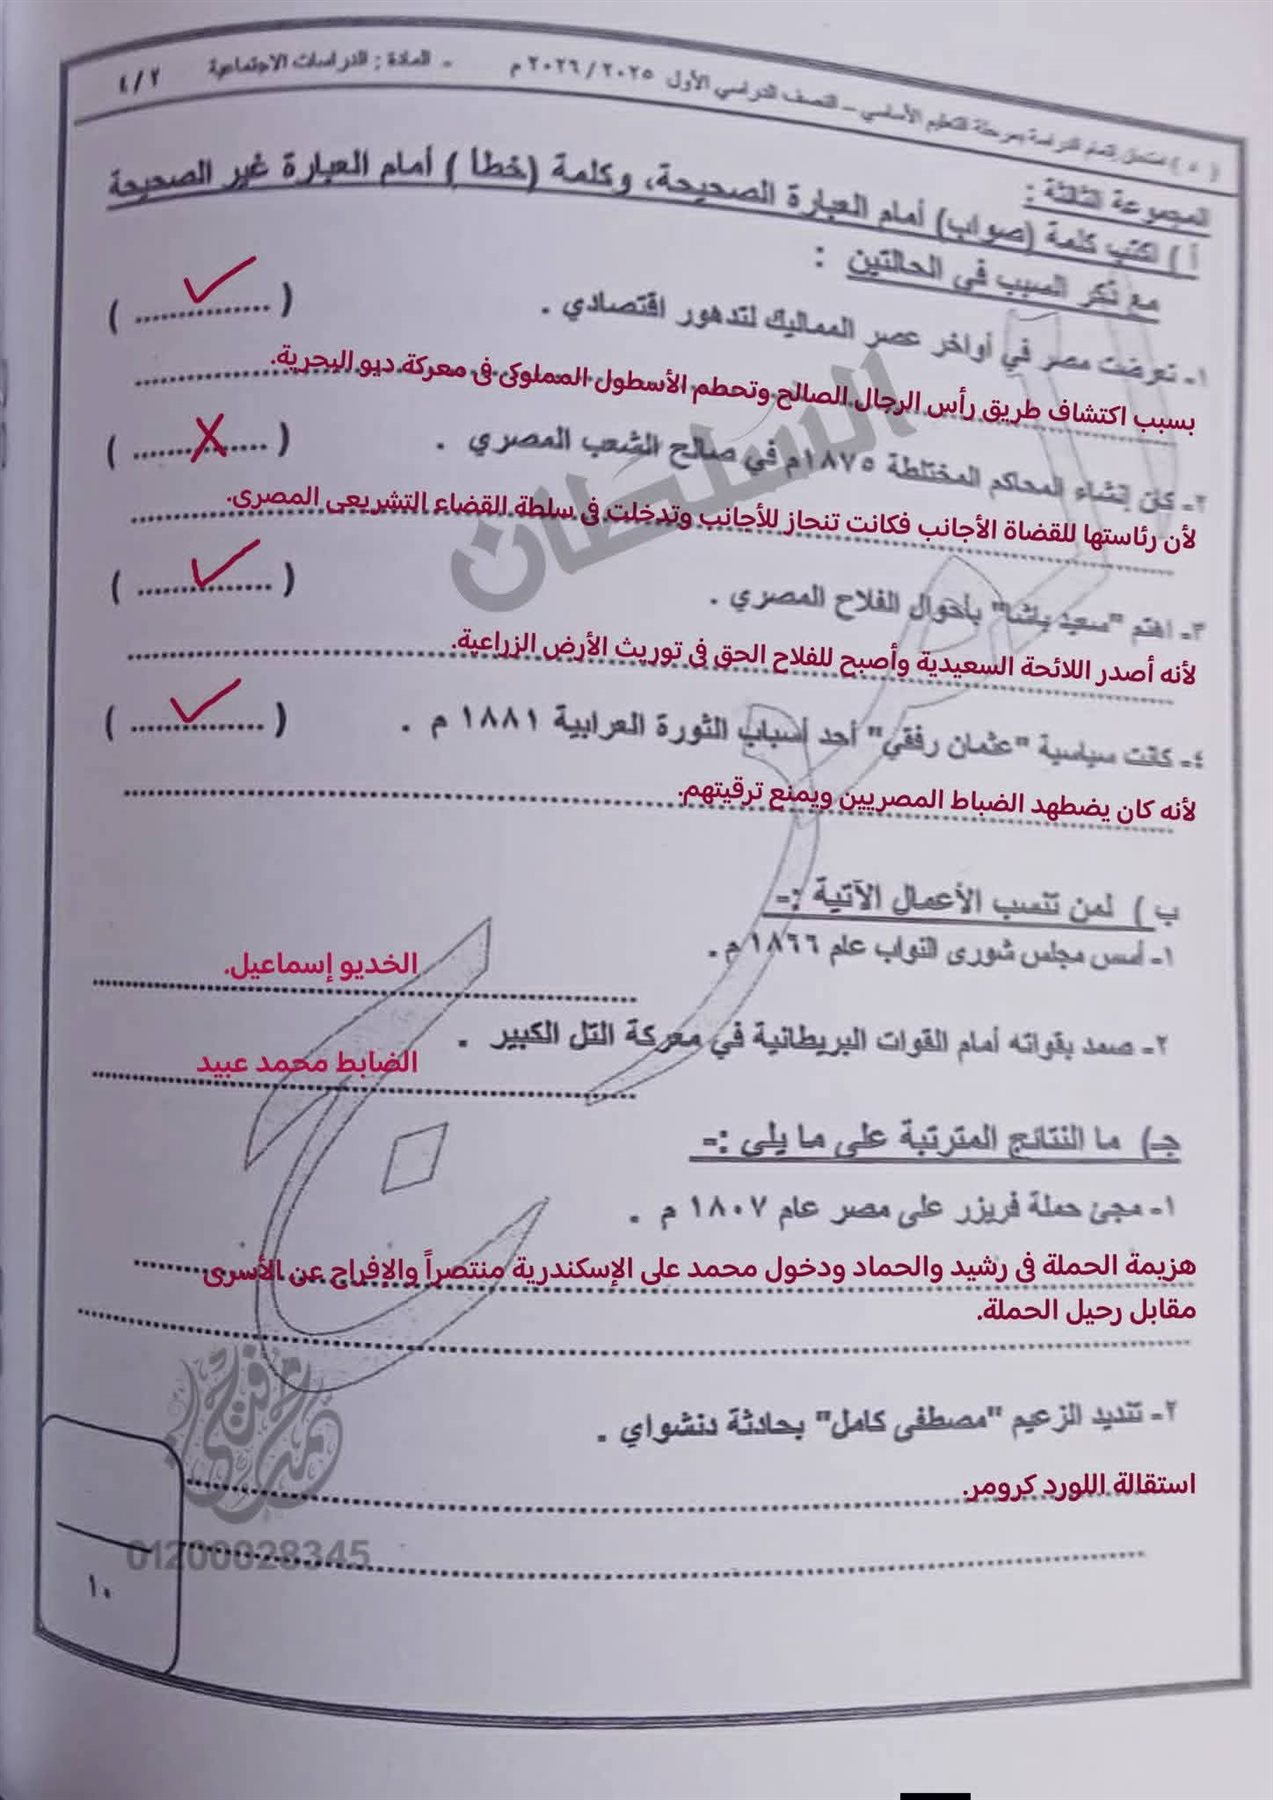 ( ٥ ) امتحان إتمام الدراسة بمرحلة التعليم الأساسي – النصف الدراسي الأول ٢٠٢٥ / ٢٠٢٦ م - المادة : الدراسات الاجتماعية ٤/٢
المجموعة الثالثة :
أ ) اكتب كلمة (صواب) أمام العبارة الصحيحة، وكلمة (خطأ ) أمام العبارة غير الصحيحة
مع ذكر السبب في الحالتين :
١- تعرضت مصر في أواخر عصر المماليك لتدهور اقتصادي . ( ............... )
بسبب اكتشاف طريق رأس الرجال الصالح وتحطم الأسطول المملوكى فى معركة ديو البحرية.
٢- كان إنشاء المحاكم المختلطة ١٨٧٥م في صالح الشعب المصري . ( ............... )
لأن رئاستها للقضاة الأجانب فكانت تنحاز للأجانب وتدخلت فى سلطة القضاء التشريعى المصرى.
٣- اهتم "سعيد باشا" بأحوال الفلاح المصري . ( ............... )
لأنه أصدر اللائحة السعيدية وأصبح للفلاح الحق فى توريث الأرض الزراعية.
٤- كانت سياسية "عثمان رفقي" أحد أسباب الثورة العرابية ١٨٨١ م . ( ............... )
لأنه كان يضطهد الضباط المصريين ويمنع ترقيتهم.
ب ) لمن تنسب الأعمال الآتية :-
١- أسس مجلس شورى النواب عام ١٨٦٦ م .
الخديو إسماعيل.
٢- صمد بقواته أمام القوات البريطانية في معركة التل الكبير .
الضابط محمد عبيد
جـ) ما النتائج المترتبة على ما يلى :-
١- مجئ حملة فريزر على مصر عام ١٨٠٧ م .
هزيمة الحملة فى رشيد والحماد ودخول محمد على الإسكندرية منتصراً والإفراج عن الأسرى
مقابل رحيل الحملة.
٢- تنديد الزعيم "مصطفى كامل" بحادثة دنشواي .
استقالة اللورد كرومر.
01200028345
١٠
السلطان